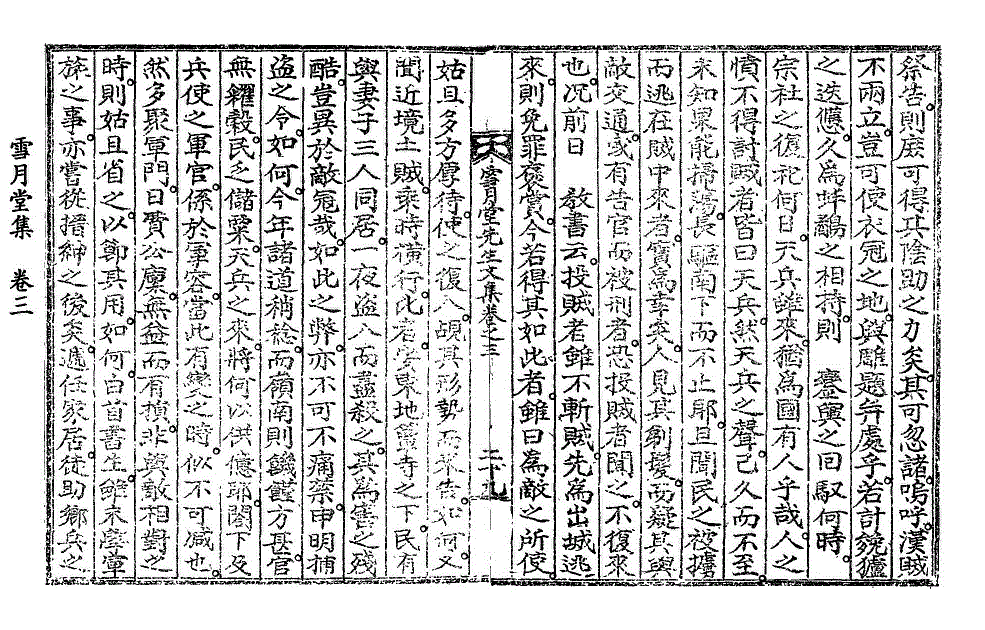 祭告則庶可得其陰助之力矣其可忽諸嗚呼漢賊
不兩立豈可使衣冠之地與雕題并處乎若計銃獹
之迭應久爲蚌鷸之相持則 鑾輿之回馭何時
宗社之復祀何日天兵雖來猶爲國有人乎哉人之
憤不得討賊者皆曰天兵然天兵之聲已久而不至
未知果能掃蕩長驅南下而不止耶且聞民之被擄
而逃在賊中來者實爲幸矣人見其剃髮而疑其與
敵交通或有告官而被刑者恐投賊者聞之不復來
也況前日 敎書云投賊者雖不斬賊先爲出城逃
來則免罪褒賞今若得其如此者雖曰爲敵之所使
雪月堂先生文集卷之三 二十九
姑且多方厚待使之復入覘其形勢而來告如何又
聞近境土賊乘時橫行此者安東地籃寺之下民有
與妻子三人同居一夜盜入而盡殺之其爲害之殘
酷豈異於敵冦哉如此之弊亦不可不痛禁申明捕
盜之令如何今年諸道稍稔而嶺南則饑饉方甚官
無糴穀民乏儲粟天兵之來將何以供億耶閤下及
兵使之軍官係於軍容當此有變之時似不可減也
然多聚軍門日費公廩無益而有損非與敵相對之
時則姑且省之以節其用如何白首書生雖未學軍
旅之事亦嘗從搢紳之後矣遞任家居徒助鄕兵之
雪月堂集 卷三